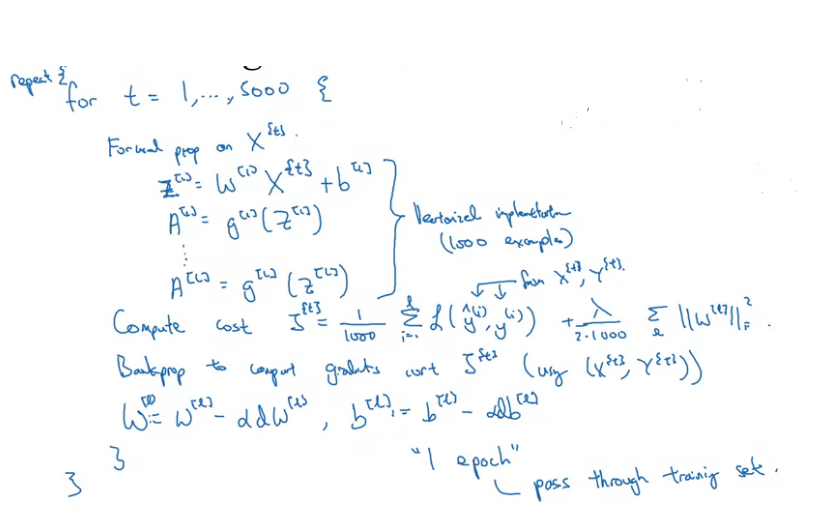 repeat {
for t = 1,...,5000 {
Forward prop on X^{t}.
Z^[1] = W^[1] X^{t} + b^[1]
A^[1] = g^[1](Z^[1])
⋮
A^[L] = g^[L](Z^[L])
} Vectorized implementation
(1000 examples)
from X^{t}, Y^{t}.
Compute cost J^{t} = 1/1000 Σ_{i=1}^{l} L(ŷ^(i), y^(i)) + λ/(2·1000) Σ_l ||W^[l]||_F^2.
Backprop to comput gradients wrt J^{t} (using (X^{t}, Y^{t}))
W^[l] := W^[l] - αdW^[l], b^[l] := b^[l] - αdb^[l]
}
}
"1 epoch"
pass through training set.